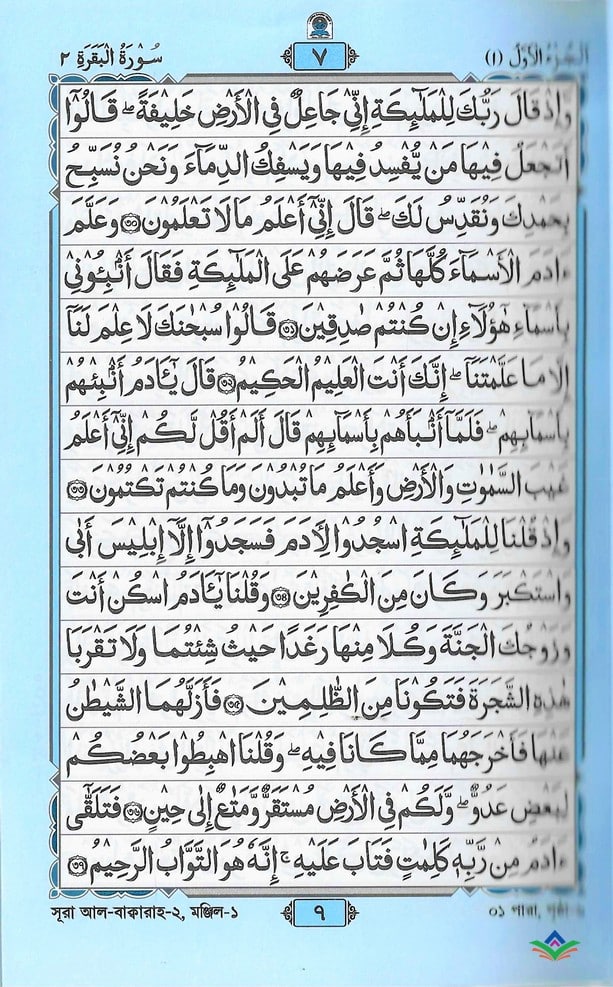 سُوْرَةُ الْبَقَرَةِ ٢
٧
اَلْجُزْءُ الْاَوَّلُ (١)
وَاِذْ قَالَ رَبُّكَ لِلْمَلٰٓئِكَةِ اِنِّيْ جَاعِلٌ فِى الْاَرْضِ خَلِيْفَةً ؕ قَالُوْٓا
اَتَجْعَلُ فِيْهَا مَنْ يُّفْسِدُ فِيْهَا وَيَسْفِكُ الدِّمَآءَ وَنَحْنُ نُسَبِّحُ
بِحَمْدِكَ وَنُقَدِّسُ لَكَ ؕ قَالَ اِنِّيْٓ اَعْلَمُ مَا لَا تَعْلَمُوْنَ ۝٣٠ وَعَلَّمَ
ءَادَمَ الْاَسْمَآءَ كُلَّهَا ثُمَّ عَرَضَهُمْ عَلَى الْمَلٰٓئِكَةِ فَقَالَ اَنْۢبِئُوْنِيْ
بِاَسْمَآءِ هٰٓؤُلَآءِ اِنْ كُنْتُمْ صٰدِقِيْنَ ۝٣١ قَالُوْا سُبْحٰنَكَ لَا عِلْمَ لَنَآ
اِلَّا مَا عَلَّمْتَنَا ؕ اِنَّكَ اَنْتَ الْعَلِيْمُ الْحَكِيْمُ ۝٣٢ قَالَ يٰٓـَٔادَمُ اَنْۢبِئْهُمْ
بِاَسْمَآئِهِمْ ؕ فَلَمَّآ اَنْۢبَاَهُمْ بِاَسْمَآئِهِمْ قَالَ اَلَمْ اَقُلْ لَّكُمْ اِنِّيْٓ اَعْلَمُ
غَيْبَ السَّمٰوٰتِ وَالْاَرْضِ وَاَعْلَمُ مَا تُبْدُوْنَ وَمَا كُنْتُمْ تَكْتُمُوْنَ ۝٣٣
وَاِذْ قُلْنَا لِلْمَلٰٓئِكَةِ اسْجُدُوْا لِاٰدَمَ فَسَجَدُوْٓا اِلَّآ اِبْلِيْسَ اَبٰى
وَاسْتَكْبَرَ وَكَانَ مِنَ الْكٰفِرِيْنَ ۝٣٤ وَقُلْنَا يٰٓـَٔادَمُ اسْكُنْ اَنْتَ
وَزَوْجُكَ الْجَنَّةَ وَكُلَا مِنْهَا رَغَدًا حَيْثُ شِئْتُمَا وَلَا تَقْرَبَا
هٰذِهِ الشَّجَرَةَ فَتَكُوْنَا مِنَ الظّٰلِمِيْنَ ۝٣٥ فَاَزَلَّهُمَا الشَّيْطٰنُ
عَنْهَا فَاَخْرَجَهُمَا مِمَّا كَانَا فِيْهِ ؕ وَقُلْنَا اهْبِطُوْا بَعْضُكُمْ
لِبَعْضٍ عَدُوٌّ ؕ وَلَكُمْ فِى الْاَرْضِ مُسْتَقَرٌّ وَّمَتٰعٌ اِلٰى حِيْنٍ ۝٣٦ فَتَلَقّٰٓى
ءَادَمُ مِنْ رَّبِّهٖ كَلِمٰتٍ فَتَابَ عَلَيْهِ ۚ اِنَّهٗ هُوَ التَّوَّابُ الرَّحِيْمُ ۝٣٧
সূরা আল-বাক্বারাহ-২, মঞ্জিল-১
৭
০১ পারা,